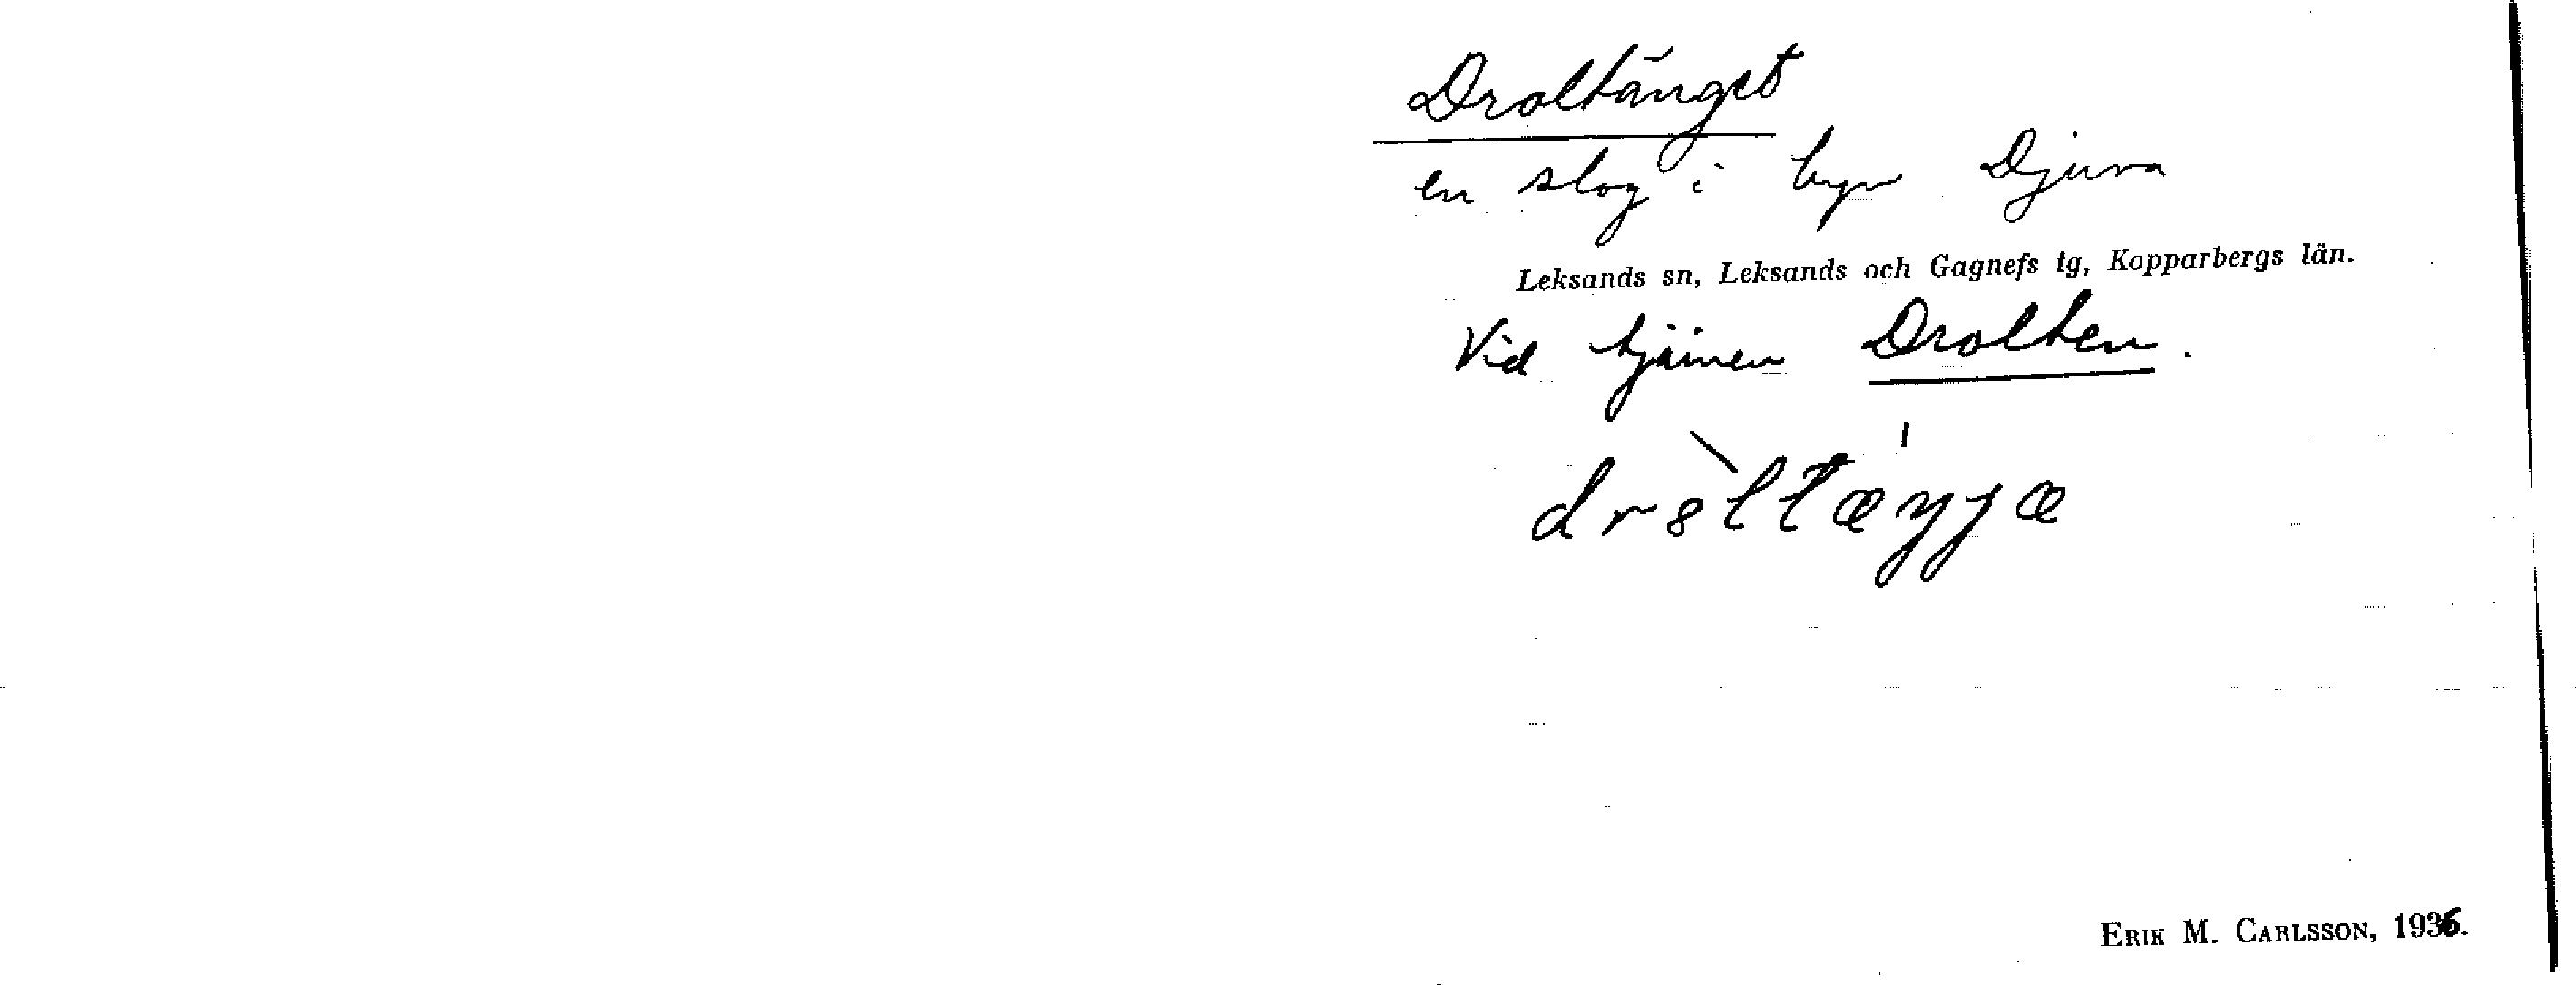 Droltänget
en slog i byn Djura
Leksands sn, Leksands och Gagnefs tg, Kopparbergs län.
Vid tjärnen Drolten.
ERIK M. CARLSSON, 1936.